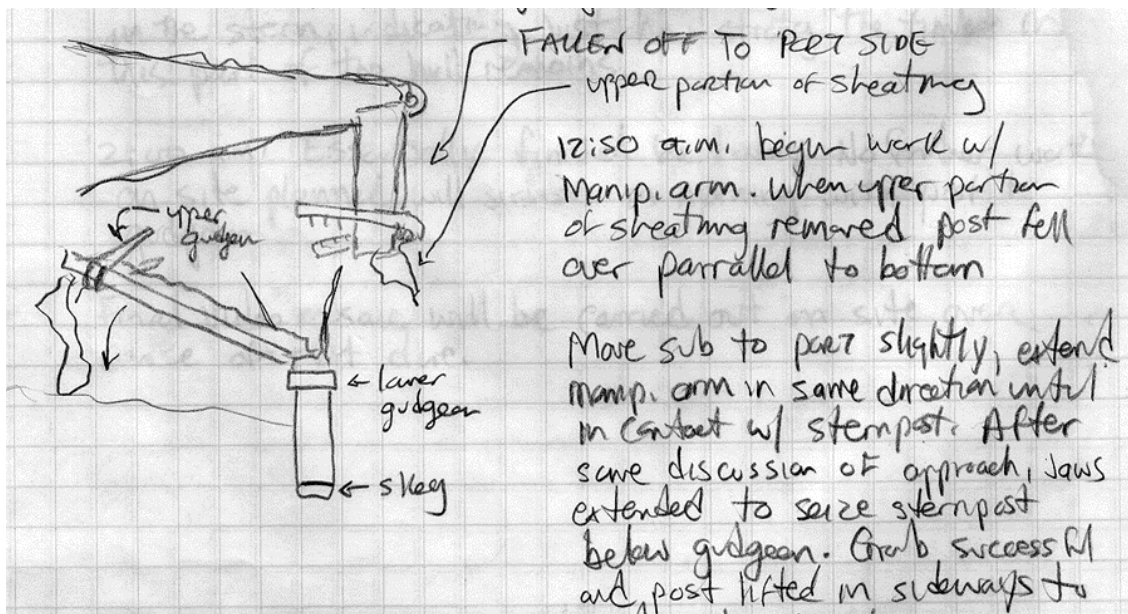 FALLEN OFF TO PORT SIDE
upper portion of sheathing
12:50 a.m. begun work w/
Manip. arm. When upper portion
of sheathing removed post fell
over parrallel to bottom
upper
gudgeon
Move sub to port slightly, extend
manip. arm in same direction until
in contact w/ sternpost. After
some discussion of approach, jaws
extended to seize sternpost
below gudgeon. Grab successful
and post lifted in sideways to
lower
gudgeon
skeg